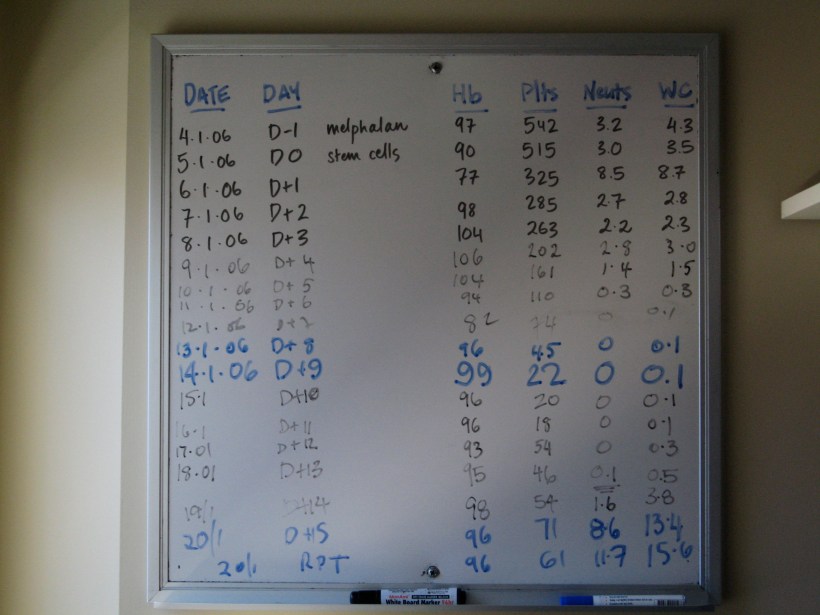 DATE DAY Hb Plts Neuts WC
4.1.06 D-1 melphalan 97 542 3.2 4.3
5.1.06 D0 stem cells 90 515 3.0 3.5
6.1.06 D+1 77 325 8.5 8.7
7.1.06 D+2 98 285 2.7 2.8
8.1.06 D+3 104 263 2.2 2.3
9.1.06 D+4 106 202 2.8 3.0
10.1.06 D+5 104 161 1.4 1.5
11.1.06 D+6 94 110 0.3 0.3
12.1.06 D+7 82 0 0.1
13.1.06 D+8 96 45 0 0.1
14.1.06 D+9 99 22 0 0.1
15.1 D+10 96 20 0 0.1
16.1 D+11 96 18 0 0.1
17.01 D+12 93 54 0 0.3
18.01 D+13 95 46 0.1 0.5
19/1 D+14 98 54 1.6 3.8
20/1 D+15 96 71 8.6 13.4
20/1 RPT 96 61 11.7 15.6
White Board Marker